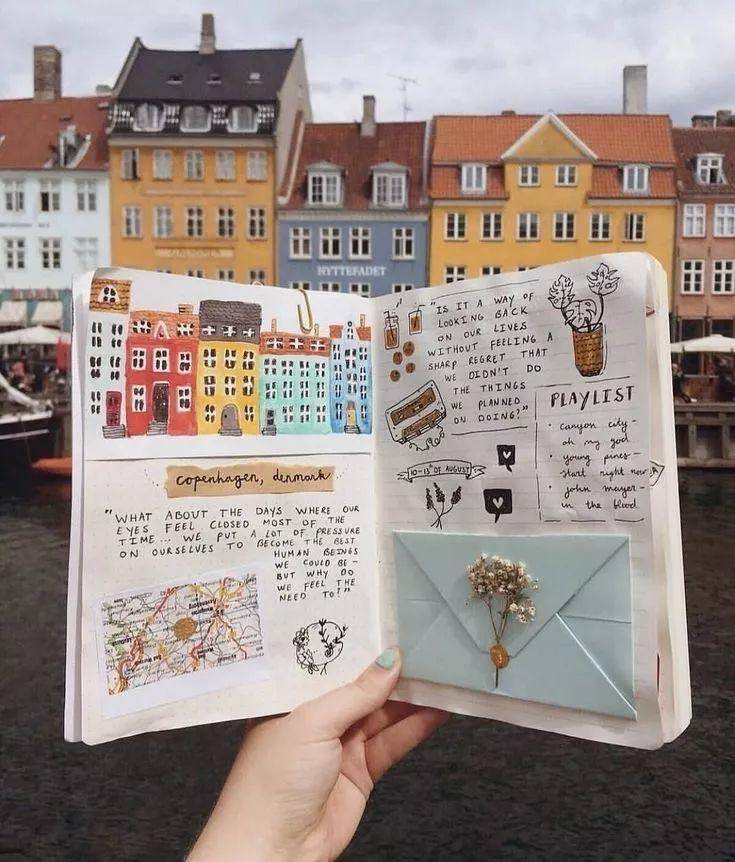 HYTTEFADET
copenhagen, denmark
"WHAT ABOUT THE DAYS WHERE OUR
EYES FEEL CLOSED MOST OF THE
TIME... WE PUT A LOT OF PRESSURE
ON OURSELVES TO BECOME THE BEST
HUMAN BEINGS
WE COULD BE -
BUT WHY DO
WE FEEL THE
NEED TO?"
"IS IT A WAY OF
LOOKING BACK
ON OUR LIVES
WITHOUT FEELING A
SHARP REGRET THAT
WE DIDN'T DO
THE THINGS
WE PLANNED
ON DOING?"
10-13th OF AUGUST
PLAYLIST
• canyon city -
oh my god
• young pines -
start right now
• john mayer -
in the blood